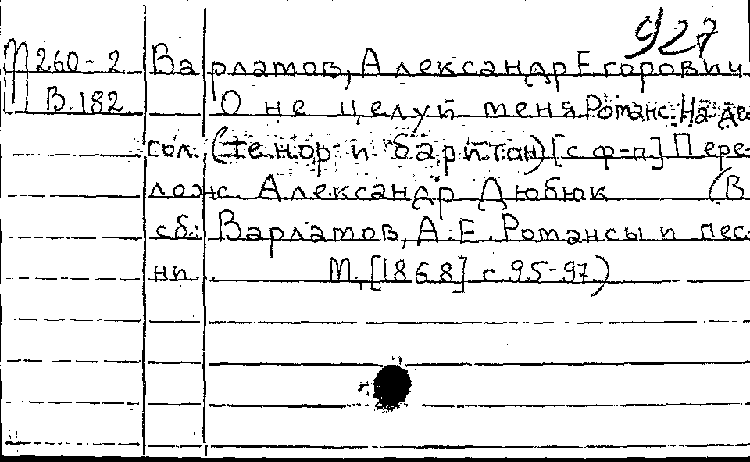 927
М 260-2 Варламов, Александр Егорович
В.182 О не целуй меня. Романс. На два
сол. (тенор и баритон) [с ф-п] Пере-
лож. Александр Дюбюк (В
сб.: Варламов, А.Е. Романсы и пес-
ни.. М, [1868] с 95-97)